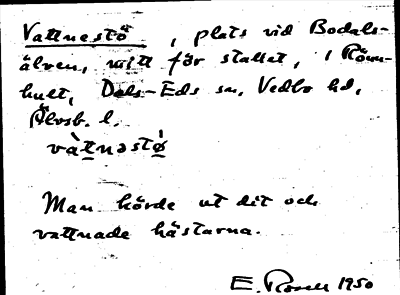 Vattnestö, plats vid Bodals-
älven, mitt för stallet, i Röm-
hult, Dals-Eds sn, Vedbo hd,
Älvsb. l.
vàt̲nəstø̲̀
Man körde ut dit och
vattnade hästarna.
E. Rosell 1950